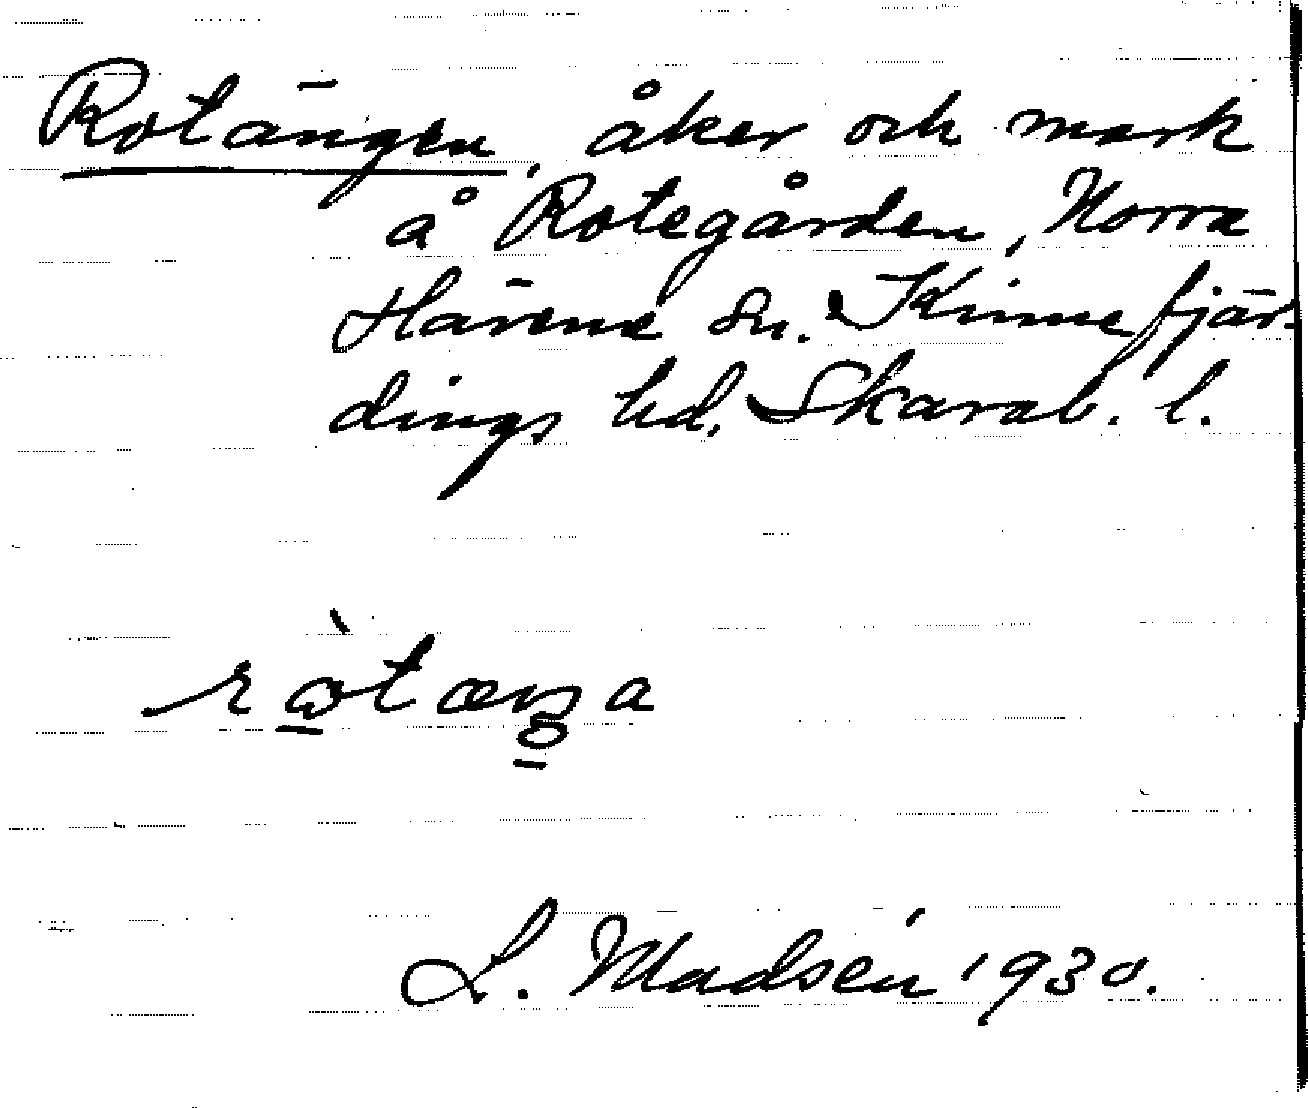 Rotängen, åker och mark
å Rotegården, Norra
Härene sn. Kinnefjär-
dings hd. Skarab. l.
L. Madsén 1930.